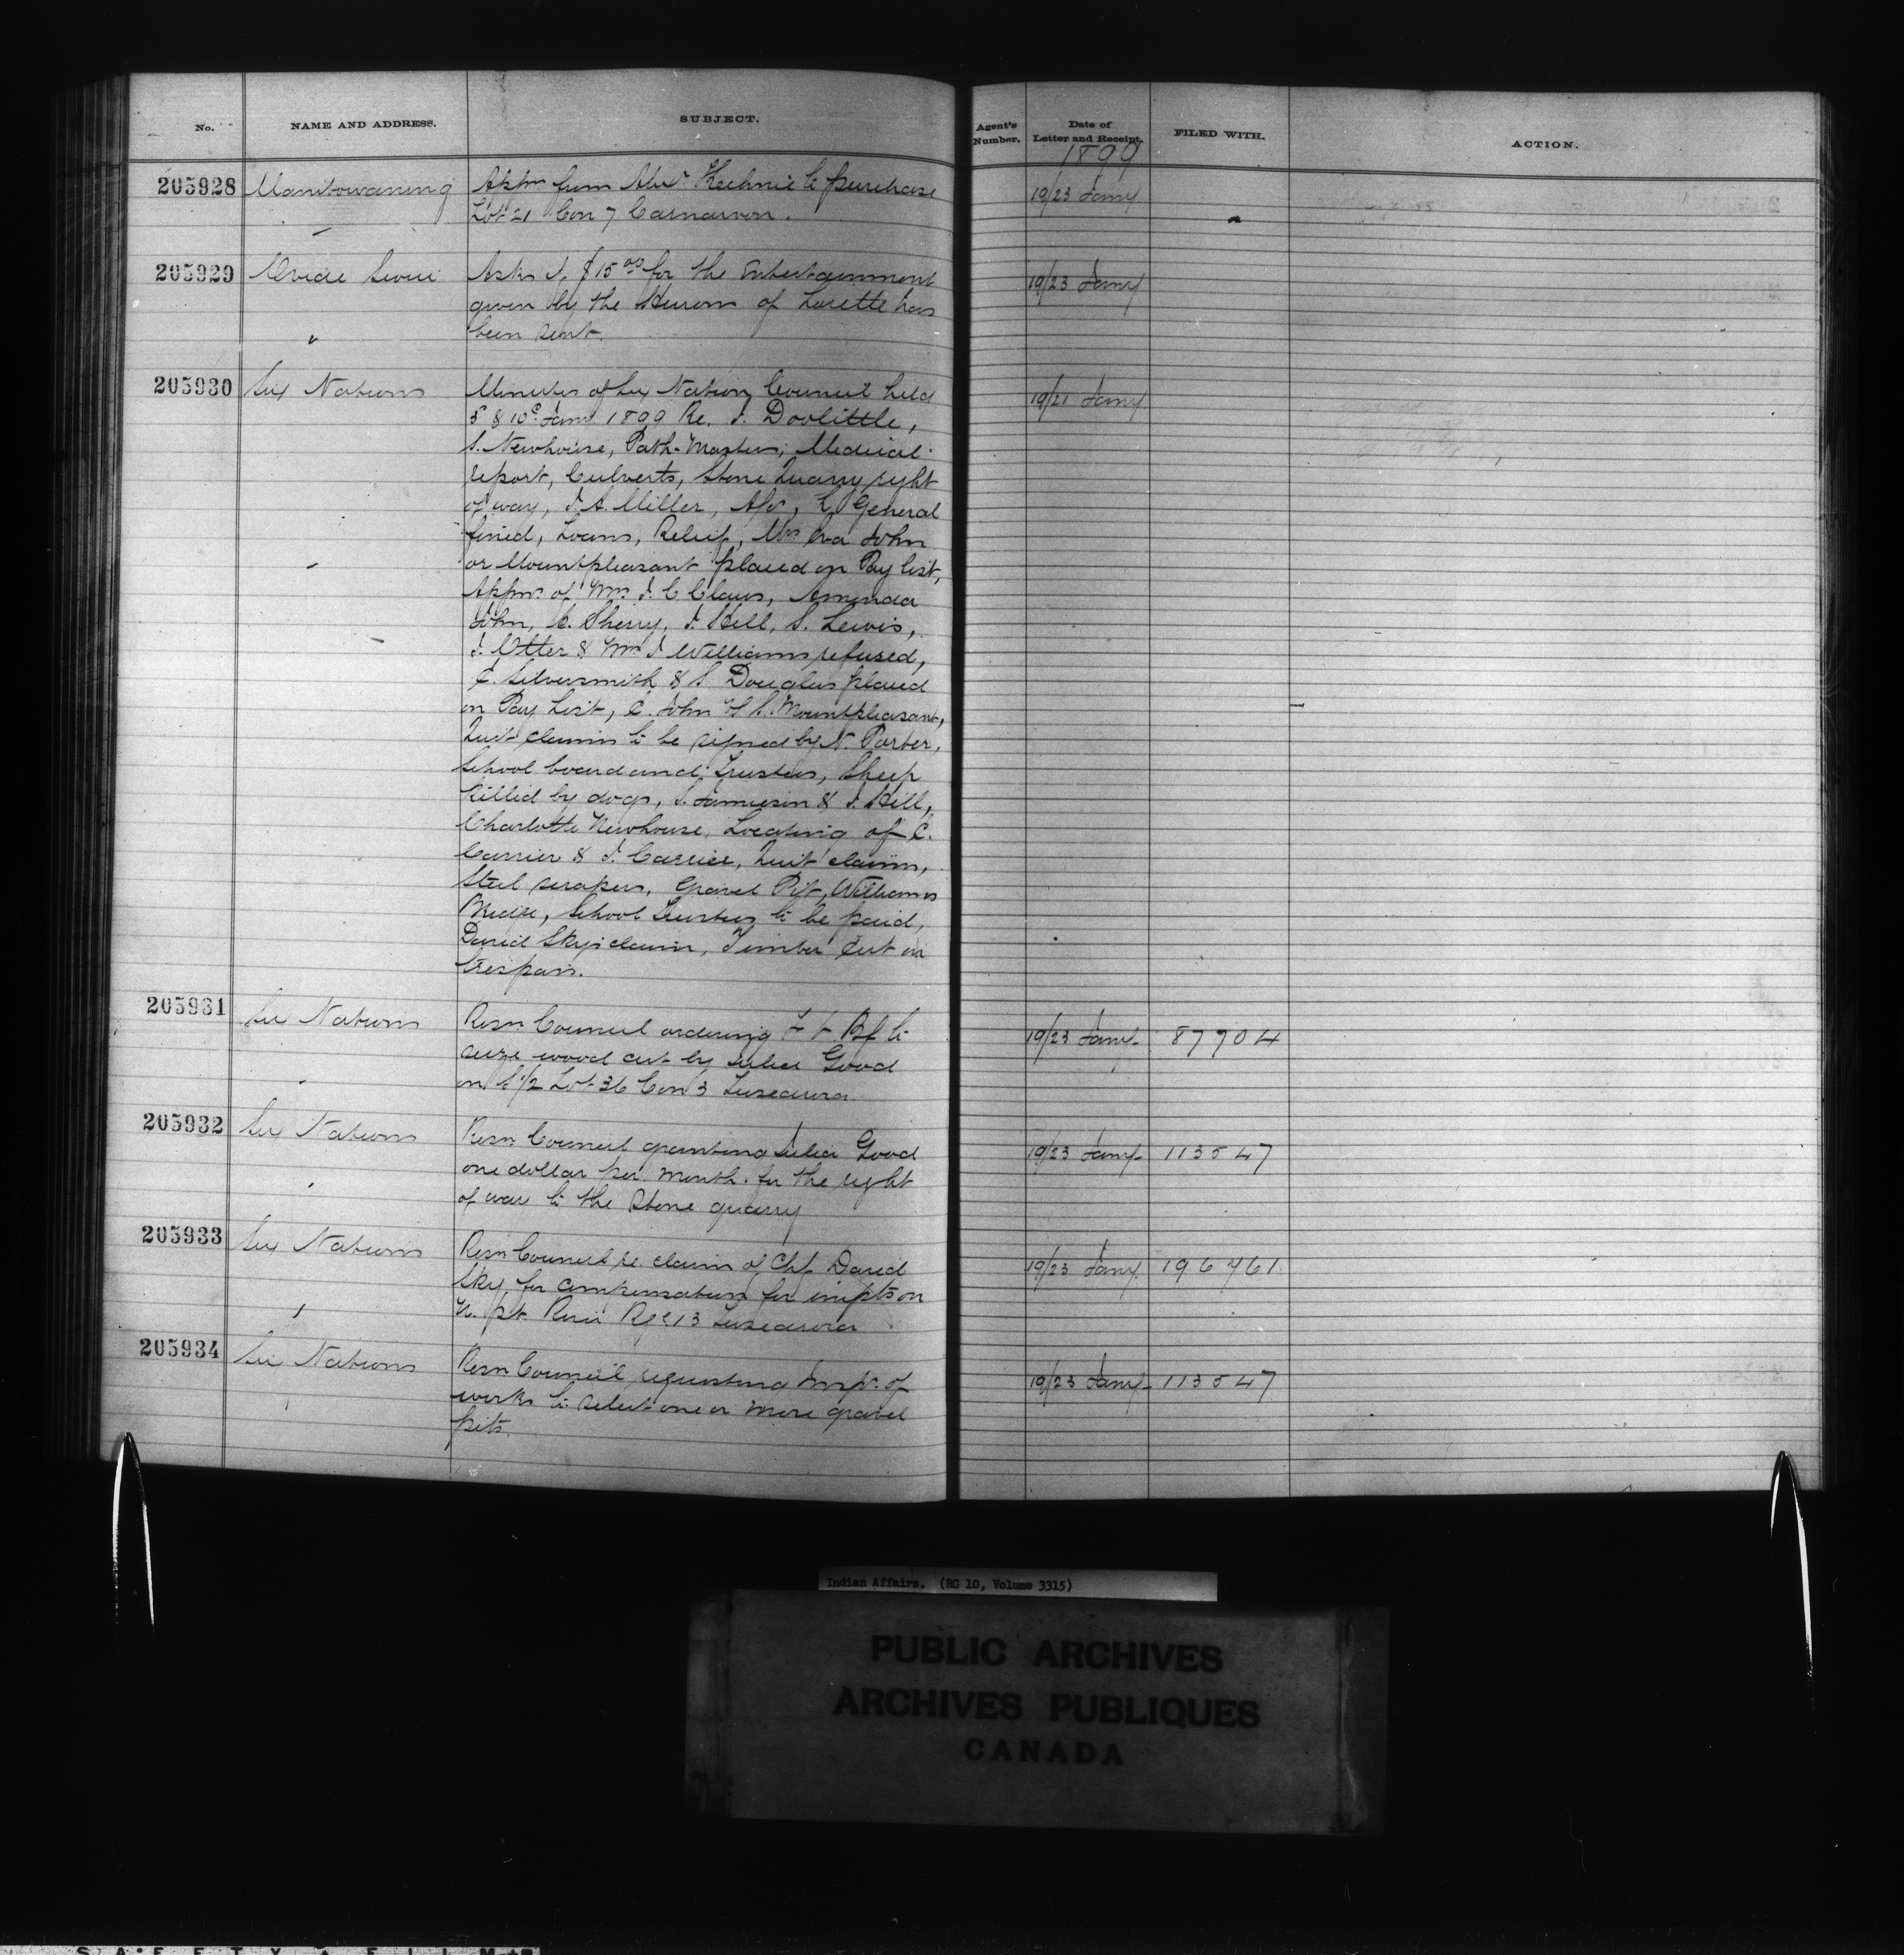 No. NAME AND ADDRESS. SUBJECT. Agent's Number. Date of Letter and Receipt. FILED WITH. ACTION.
1899
205928 Manitowaning Appn from Alexr Kechnie to purchase 19/23 Jany
Lot 21 Con 7 Carnarvon.
205929 Ovide Sioui Asks if $15 00 for the Entertainment 19/23 Jany
given by the Hurons of Lorette has
been sent.
205930 Six Nations Minutes of Six Nation Council held 19/21 Jany
5 & 10 Jany 1899 Re. J. Doolittle,
S. Newhouse, Path-Masters, Medical
report, Culverts, Stone Quarry right
of way, J. A. Miller, General
fined, Loans, Relief, Mrs Eva John
or Mountpleasant placed on Pay list,
Appns of Mrs J. C Claus, Amenda
John, C. Sherry, J. Hill, S. Lewis,
J. Otter & Mrs J Williams refused,
C. Silversmith & S Douglas placed
on Pay List, C. John & S. Mountpleasant,
Quit claims to be signed by N. Porter,
School board and Trustees, Sheep
killed by dogs, J. Jamieson & J. Hill,
Charlotte Newhouse, Locating of C.
Carrier & J. Carrier, Quit claims,
Steel scrapers, Gravel Pit, Williams
Bridge, School Trustees to be paid,
David Sky's claim, Timber Cut in
trespass.
205931 Six Nations Resn Council ordering to 19/23 Jany 87704
seize wood cut by Julia Good
on 1/2 Lot 36 Con 3 Tuscarora
205932 Six Nations Resn Council granting Julia Good 19/23 Jany 113547
one dollar per month for the right
of way to the Stone quarry
205933 Six Nations Resn Council re claim of Chf David 19/23 Jany 196761.
Sky for compensation for impts on
N. pt River Rge 13 Tuscarora
205934 Six Nations Resn Council requesting Inspr of 19/23 Jany 113547
works to select one or more gravel
pits.
Indian Affairs. (RG 10, Volume 3315)
PUBLIC ARCHIVES
ARCHIVES PUBLIQUES
CANADA